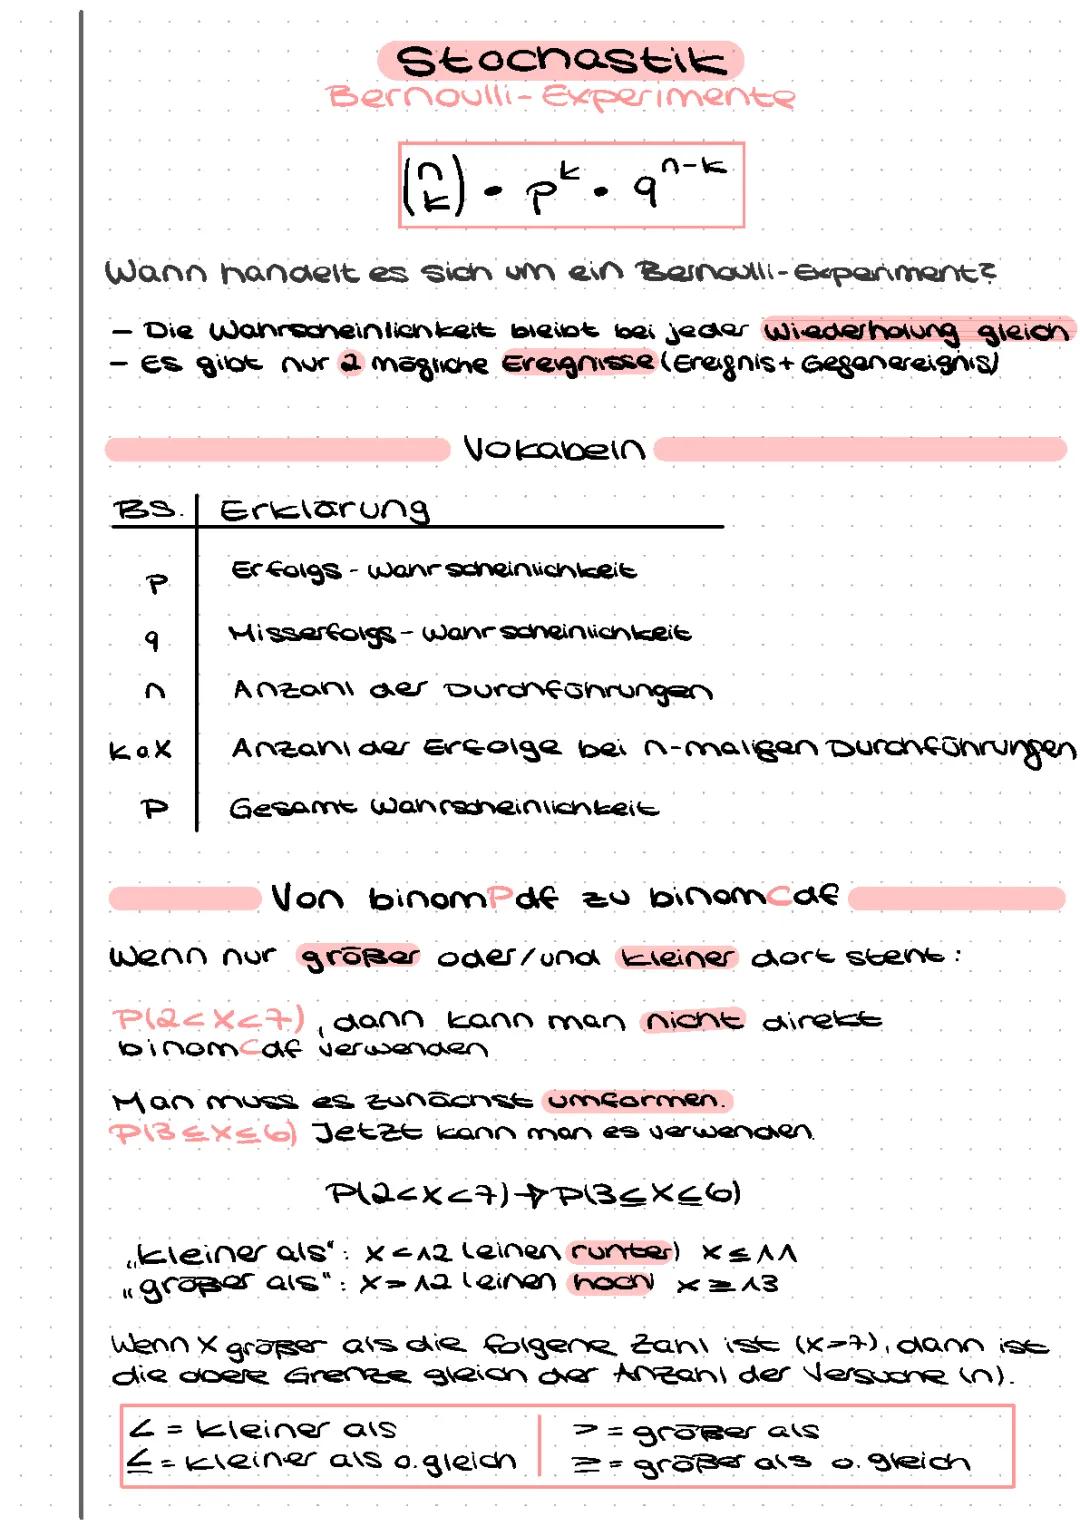 Stochastik
Bernoulli-Experimente
(n k) • p^k • q^(n-k)
Wann handelt es sich um ein Bernoulli-Experiment?
- Die Wahrscheinlichkeit bleibt bei jeder Wiederholung gleich
- Es gibt nur 2 mögliche Ereignisse (Ereignis + Gegenereignis)
Vokabeln
BS. Erklärung
p Erfolgs-Wahrscheinlichkeit
q Misserfolgs-Wahrscheinlichkeit
n Anzahl der Durchführungen
k o. X Anzahl der Erfolge bei n-maligen Durchführungen
P Gesamt Wahrscheinlichkeit
Von binomPdf zu binomCdf
Wenn nur größer oder/und kleiner dort steht:
P(2<X<7), dann kann man nicht direkt
binomCdf verwenden
Man muss es zunächst umformen.
P(3≤X≤6) Jetzt kann man es verwenden.
P(2<X<7)→P(3≤X≤6)
„kleiner als“: X<12 (einen runter) X≤11
„größer als“: X>12 (einen hoch) X≥13
Wenn X größer als die folgene Zahl ist (X>7), dann ist
die obere Grenze gleich der Anzahl der Versuche (n).
< = kleiner als
≤ = kleiner als o. gleich
> = größer als
≥ = größer als o. gleich